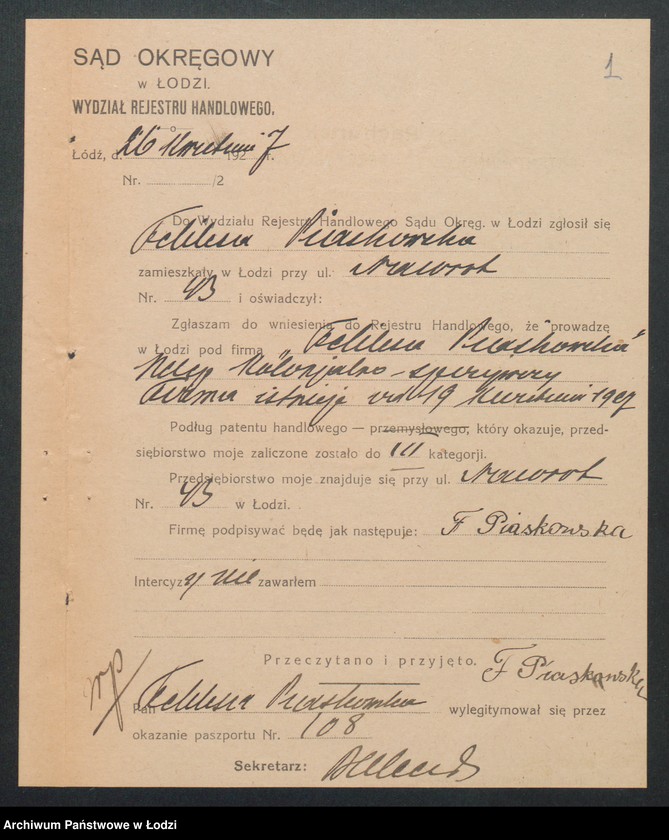 1
SĄD OKRĘGOWY
W ŁODZI.
WYDZIAŁ REJESTRU HANDLOWEGO.
Łódź, d. 26 Kwietnia 1927 r.
Nr. /2
Do Wydziału Rejestru Handlowego Sądu Okręg. w Łodzi zgłosił się
Piaskowska
zamieszkały w Łodzi przy ul. Nawrot
Nr. 43 i oświadczył:
Zgłaszam do wniesienia do Rejestru Handlowego, że prowadzę
w Łodzi pod firmą „ Piaskowska"
sklep kolonjalno-spożywczy
Firma istnieje od 19 kwietnia 1927
Podług patentu handlowego — przemysłowego, który okazuje, przed-
siębiorstwo moje zaliczone zostało do III kategorji.
Przedsiębiorstwo moje znajduje się przy ul. Nawrot
Nr. 43 w Łodzi.
Firmę podpisywać będę jak następuje: F Piaskowska
Intercyzy nie zawarłem
Przeczytano i przyjęto. F Piaskowska
Pan Piaskowska wylegitymował się przez
okazanie paszportu Nr. 108
Sekretarz:
Archiwum Państwowe w Łodzi